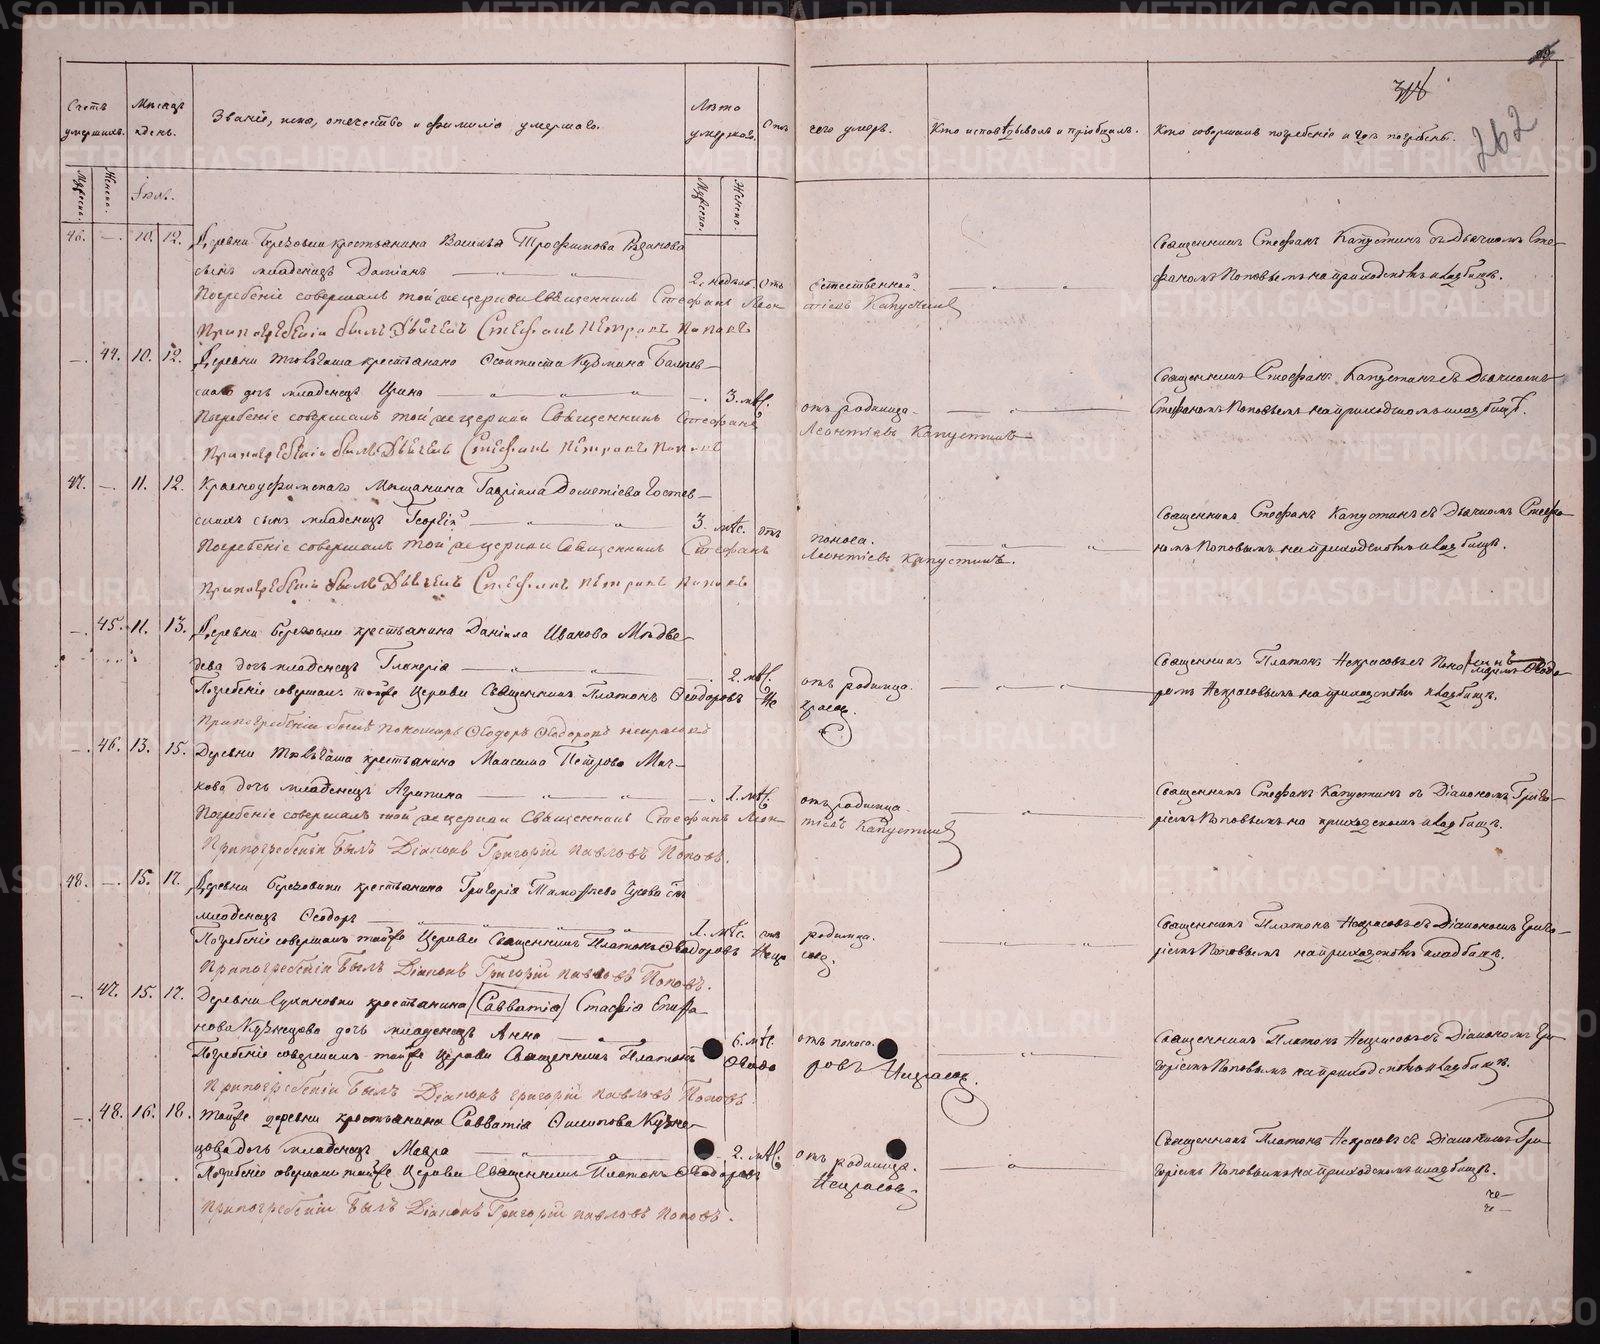 Счетъ умершихъ.
Мѣсяцъ и день.
Званіе, имя, отечество и фамилія умершаго.
Лѣта умершаго.
Отъ чего умеръ.
Кто исповѣдывалъ и пріобщалъ.
Кто совершалъ погребеніе и гдѣ погребены.
262
Мужеска.
Женска.
Іюль.
Мужеска.
Женска.
46. — 10. 12. Деревни Березовки крестьянина Василья Трофимова
сынъ младенецъ Даміанъ 2. недѣль отъ естественной.
Священникъ Стефанъ Капустинъ съ Дьячкомъ Сте-
фаномъ Поповымъ на приходскомъ кладбищѣ.
Погребеніе совершалъ той же церкви Священникъ Стефанъ Леон-
тіевъ Капустинъ
При погребеніи былъ Дьячекъ Стефанъ Петровъ Поповъ
— 44. 10. 12. Деревни крестьянина Кузмина
дочь младенецъ Ирина 3. мѣс. отъ родимца.
Священникъ Стефанъ Капустинъ съ Дьячкомъ
Стефаномъ Поповымъ на приходскомъ кладбищѣ.
Погребеніе совершалъ той же церкви Священникъ Стефанъ
Леонтіевъ Капустинъ
При погребеніи былъ Дьячекъ Стефанъ Петровъ Поповъ
47. — 11. 12. Красноуфимскаго Мѣщанина Гавріила Дометіева
сынъ младенецъ Георгій 3. мѣс. отъ поноса.
Священникъ Стефанъ Капустинъ съ Дьячкомъ Стефа-
номъ Поповымъ на приходскомъ кладбищѣ.
Погребеніе совершалъ той же церкви Священникъ Стефанъ
Леонтіевъ Капустинъ.
При погребеніи былъ Дьячекъ Стефанъ Петровъ Поповъ
— 45. 11. 13. Деревни Березовки крестьянина Даніила Иванова Мѣдве-
дева дочь младенецъ Гликерія 2. мѣс. отъ родимца.
Священникъ Платонъ Некрасовъ съ Ѳеодо-
ромъ Некрасовымъ на приходскомъ кладбищѣ.
Погребеніе совершалъ тойже Церкви Священникъ Платонъ Ѳеодоровъ Не-
красовъ
При погребеніи былъ Пономарь Ѳеодоръ Ѳеодоровъ Некрасовъ
— 46. 13. 15. Деревни крестьянина Максима Петрова
дочь младенецъ Агрипина 1. мѣс. отъ родимца
Священникъ Стефанъ Капустинъ съ Діакономъ Григо-
ріемъ Поповымъ на приходскомъ кладбищѣ.
Погребеніе совершалъ той же церкви Священникъ Стефанъ Леон-
тіевъ Капустинъ
При погребеніи былъ Діаконъ Григорій Павловъ Поповъ.
48. — 15. 17. Деревни Березовки крестьянина Григорія Тимофѣева сынъ
младенецъ Ѳеодоръ 1. мѣс. отъ родимца.
Священникъ Платонъ Некрасовъ съ Діакономъ Григо-
ріемъ Поповымъ на приходскомъ кладбищѣ.
Погребеніе совершалъ тойже Церкви Священникъ Платонъ Ѳеодоровъ Некра-
совъ.
При погребеніи былъ Діаконъ Григорій Павловъ Поповъ.
— 47. 15. 17. Деревни Сухановки крестьянина (Савватія) Епифа-
нова Кузнецова дочь младенецъ Анна 6. мѣс. отъ поноса.
Священникъ Платонъ Некрасовъ съ Діакономъ Гри-
горіемъ Поповымъ на приходскомъ кладбищѣ.
Погребеніе совершалъ тойже Церкви Священникъ Платонъ Ѳеодо-
ровъ Некрасовъ.
При погребеніи былъ Діаконъ Григорій Павловъ Поповъ.
— 48. 16. 18. Тойже деревни крестьянина Савватія Кузне-
цова дочь младенецъ Мавра 2. мѣс. отъ родимца.
Священникъ Платонъ Некрасовъ съ Діакономъ Гри-
горіемъ Поповымъ на приходскомъ кладбищѣ.
Погребеніе совершалъ тойже Церкви Священникъ Платонъ Ѳеодоровъ
Некрасовъ.
При погребеніи былъ Діаконъ Григорій Павловъ Поповъ.
METRIKI.GASO-URAL.RU